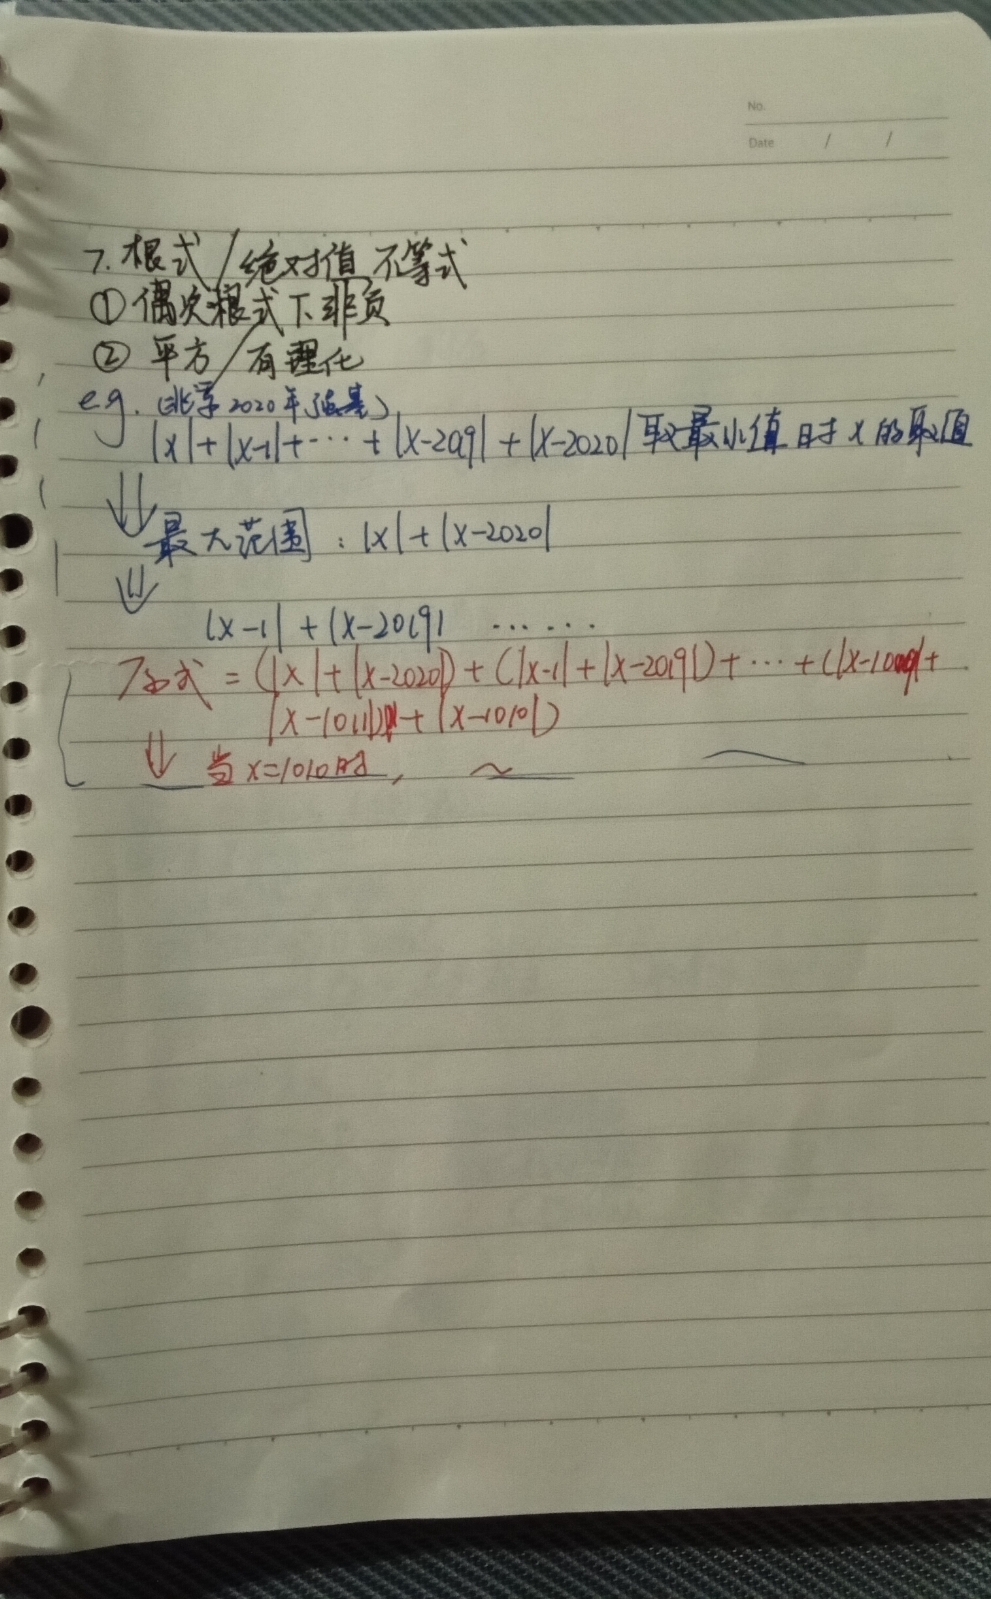 No.
Date / /
7. 根式/绝对值 不等式
① 偶次根式下非负
② 平方/有理化
e.g. (北京2020年强基)
|x|+|x-1|+…+|x-2019|+|x-2020| 取最小值时 x 的取值
最大范围:|x|+|x-2020|
|x-1|+|x-2019| ……
原式 = (|x|+|x-2020|)+(|x-1|+|x-2019|)+…+(|x-1009|+
|x-1011|)+|x-1010|)
当x=1010时,